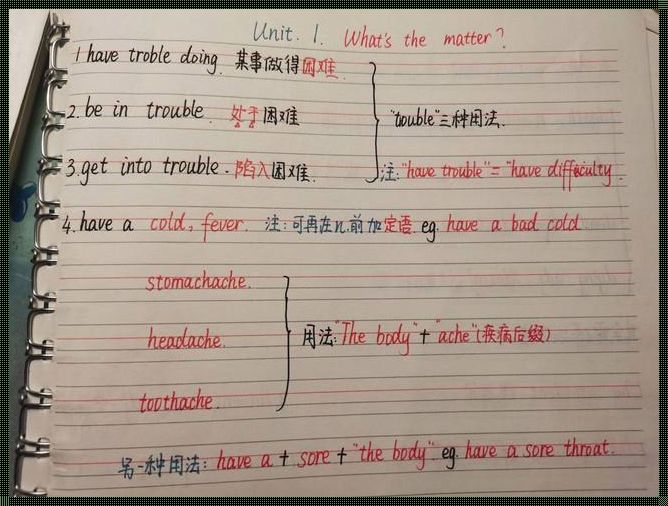 Unit. 1. What's the matter?
1 have troble doing. 某事做得困难.
2. be in trouble. 处于困难
"trouble"三种用法.
3. get into trouble. 陷入困难.
注: "have trouble" = "have difficulty
4. have a cold, fever. 注: 可再在n.前加定语. eg. have a bad cold
stomachache.
headache.
用法: "The body" + "ache" (疾病后缀)
toothache.
另一种用法: have a + sore + "the body" eg. have a sore throat.